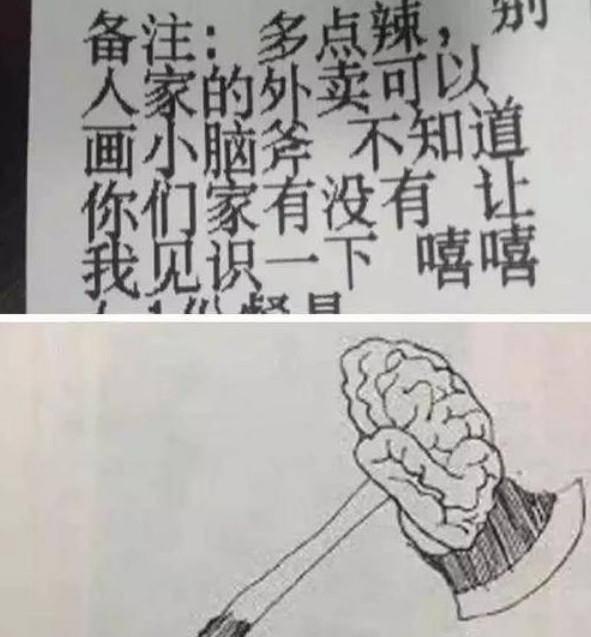 备注：多点辣，别
人家的外卖可以
画小脑斧 不知道
你们家有没有 让
我见识一下 嘻嘻